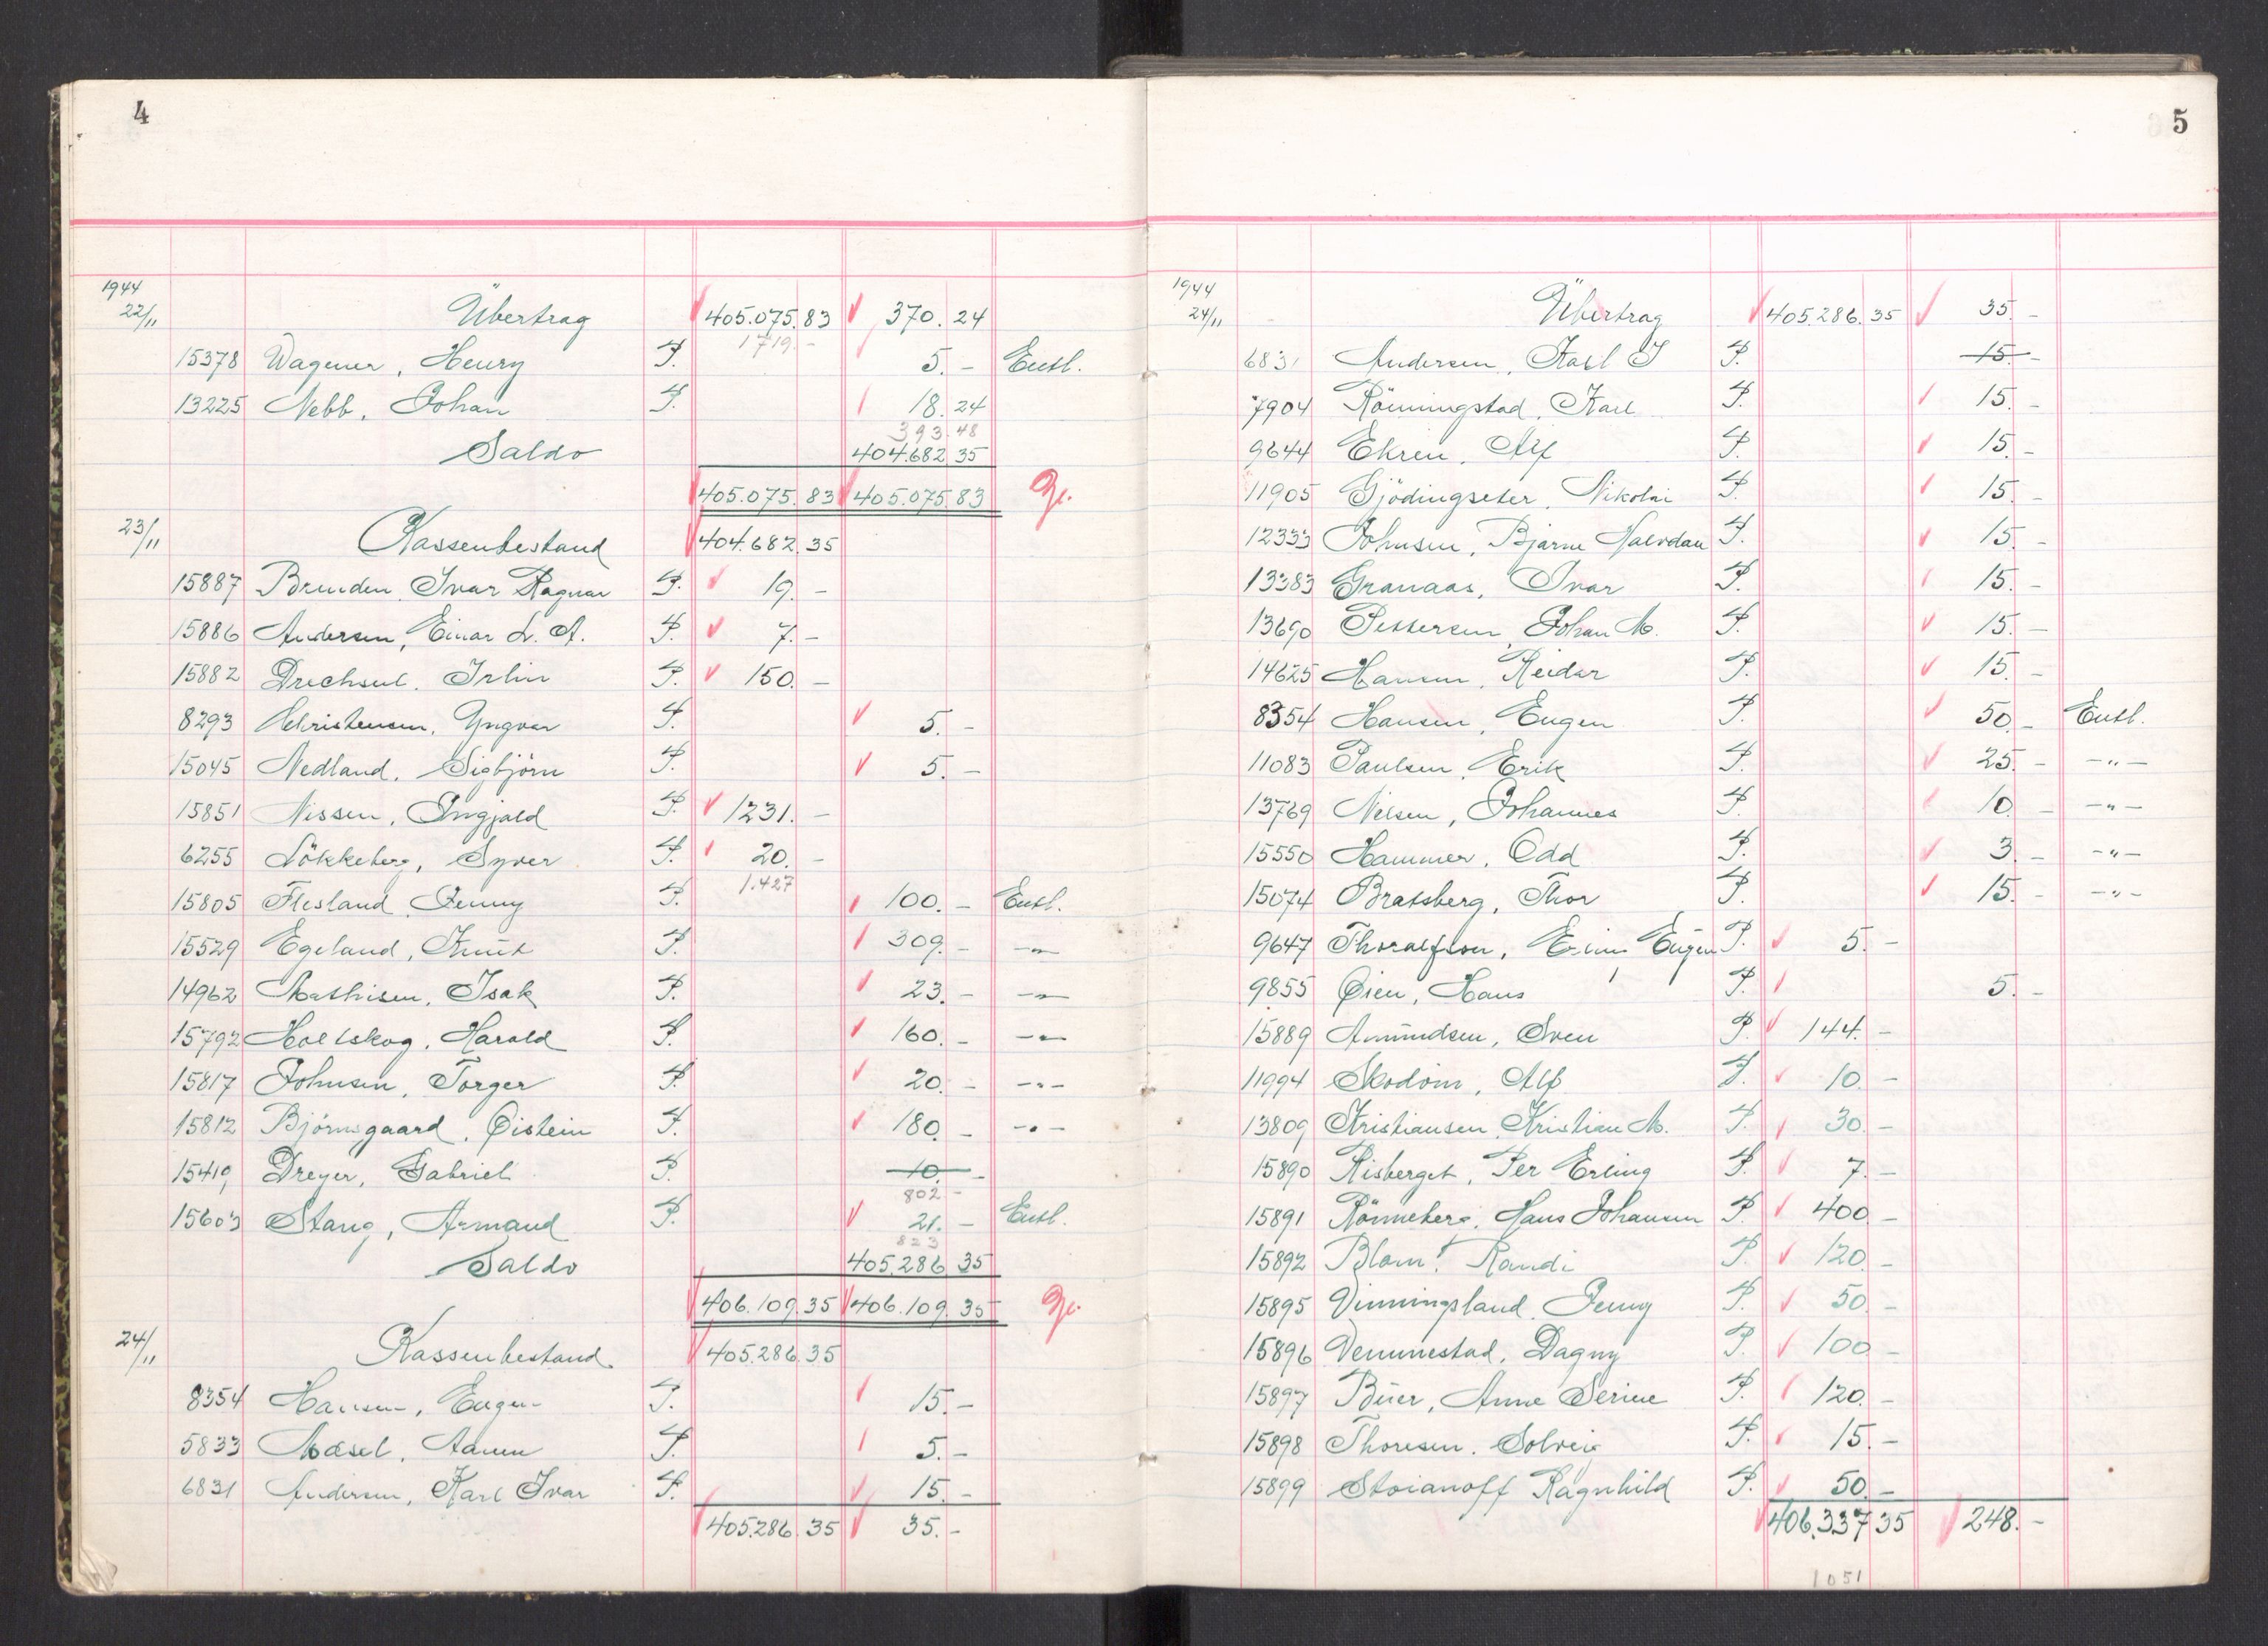 4
1944
22/11 Übertrag 405.075.83 370.24
1719.-
15378 Wagener, Henry P. 5.- Entl.
13225 Nebb, Johan P. 18.24
393.48
Saldo 404.682.35
405.075.83 405.075.83
23/11 Kassenbestand 404.682.35
15887 Brenden, Ivar Ragnar P. 19.-
15886 Andersen, Einar L. A. P. 7.-
15882 Drechsel, Irlin P. 150.-
8293 Christensen, Yngvar P. 5.-
15045 Nedland, Sigbjörn P. 5.-
15851 Nissen, Ingjald P. 1231.-
6255 Lökkeberg, Syver P. 20.-
1.427
15805 Flesland, Jenny P. 100.- Entl.
15529 Egeland, Knut P. 309.- -"-
14962 Mathisen, Isak P. 23.- -"-
15792 Holtskog, Harald P. 160.- -"-
15817 Johnsen, Torger P. 20.- -"-
15812 Björnsgaard, Øistein P. 180.- -"-
15410 Dreyer, Gabriel P. 10.-
802.-
15603 Stang, Armand P. 21.- Entl.
823
Saldo 405.286.35
406.109.35 406.109.35
24/11 Kassenbestand 405.286.35
8354 Hansen, Eugen P. 15.-
5833 Mæsel, Aanen P. 5.-
6831 Andersen, Karl Ivar P. 15.-
405.286.35 35.-
5
1944
24/11 Übertrag 405.286.35 35.-
6831 Andersen, Karl I P. 15.-
7904 Rönningstad, Karl P. 15.-
9644 Ekren, Alf P. 15.-
11905 Gjödingseter, Nikolai P. 15.-
12333 Johnsen, Bjarne Halvdan P. 15.-
13383 Granaas, Ivar P. 15.-
13690 Pettersen, Johan M. P. 15.-
14625 Hansen, Reidar P. 15.-
8354 Hansen, Eugen P. 50.- Entl.
11083 Paulsen, Erik P. 25.- -"-
13769 Nilsen, Johannes P. 10.- -"-
15550 Hammer, Odd P. 3.- -"-
15074 Bratsberg, Thor P. 15.- -"-
9647 Thoralfsen, Eugen P. 5.-
9855 Øien, Hans P. 5.-
15889 Amundsen, Sven P. 144.-
11994 Skodvin, Alf P. 10.-
13809 Kristiansen, Kristian M. P. 30.-
15890 Risberget, Per Erling P. 7.-
15891 Rönneberg, Hans Johansen P. 400.-
15892 Blom, Randi P. 120.-
15895 Vinningsland, Jenny P. 50.-
15896 Vemmestad, Dagny P. 100.-
15897 Büer, Anne Serine P. 120.-
15898 Thoresen, Solveig P. 15.-
15899 Stoianoff Ragnhild P. 50.-
406.337.35 248.-
1051